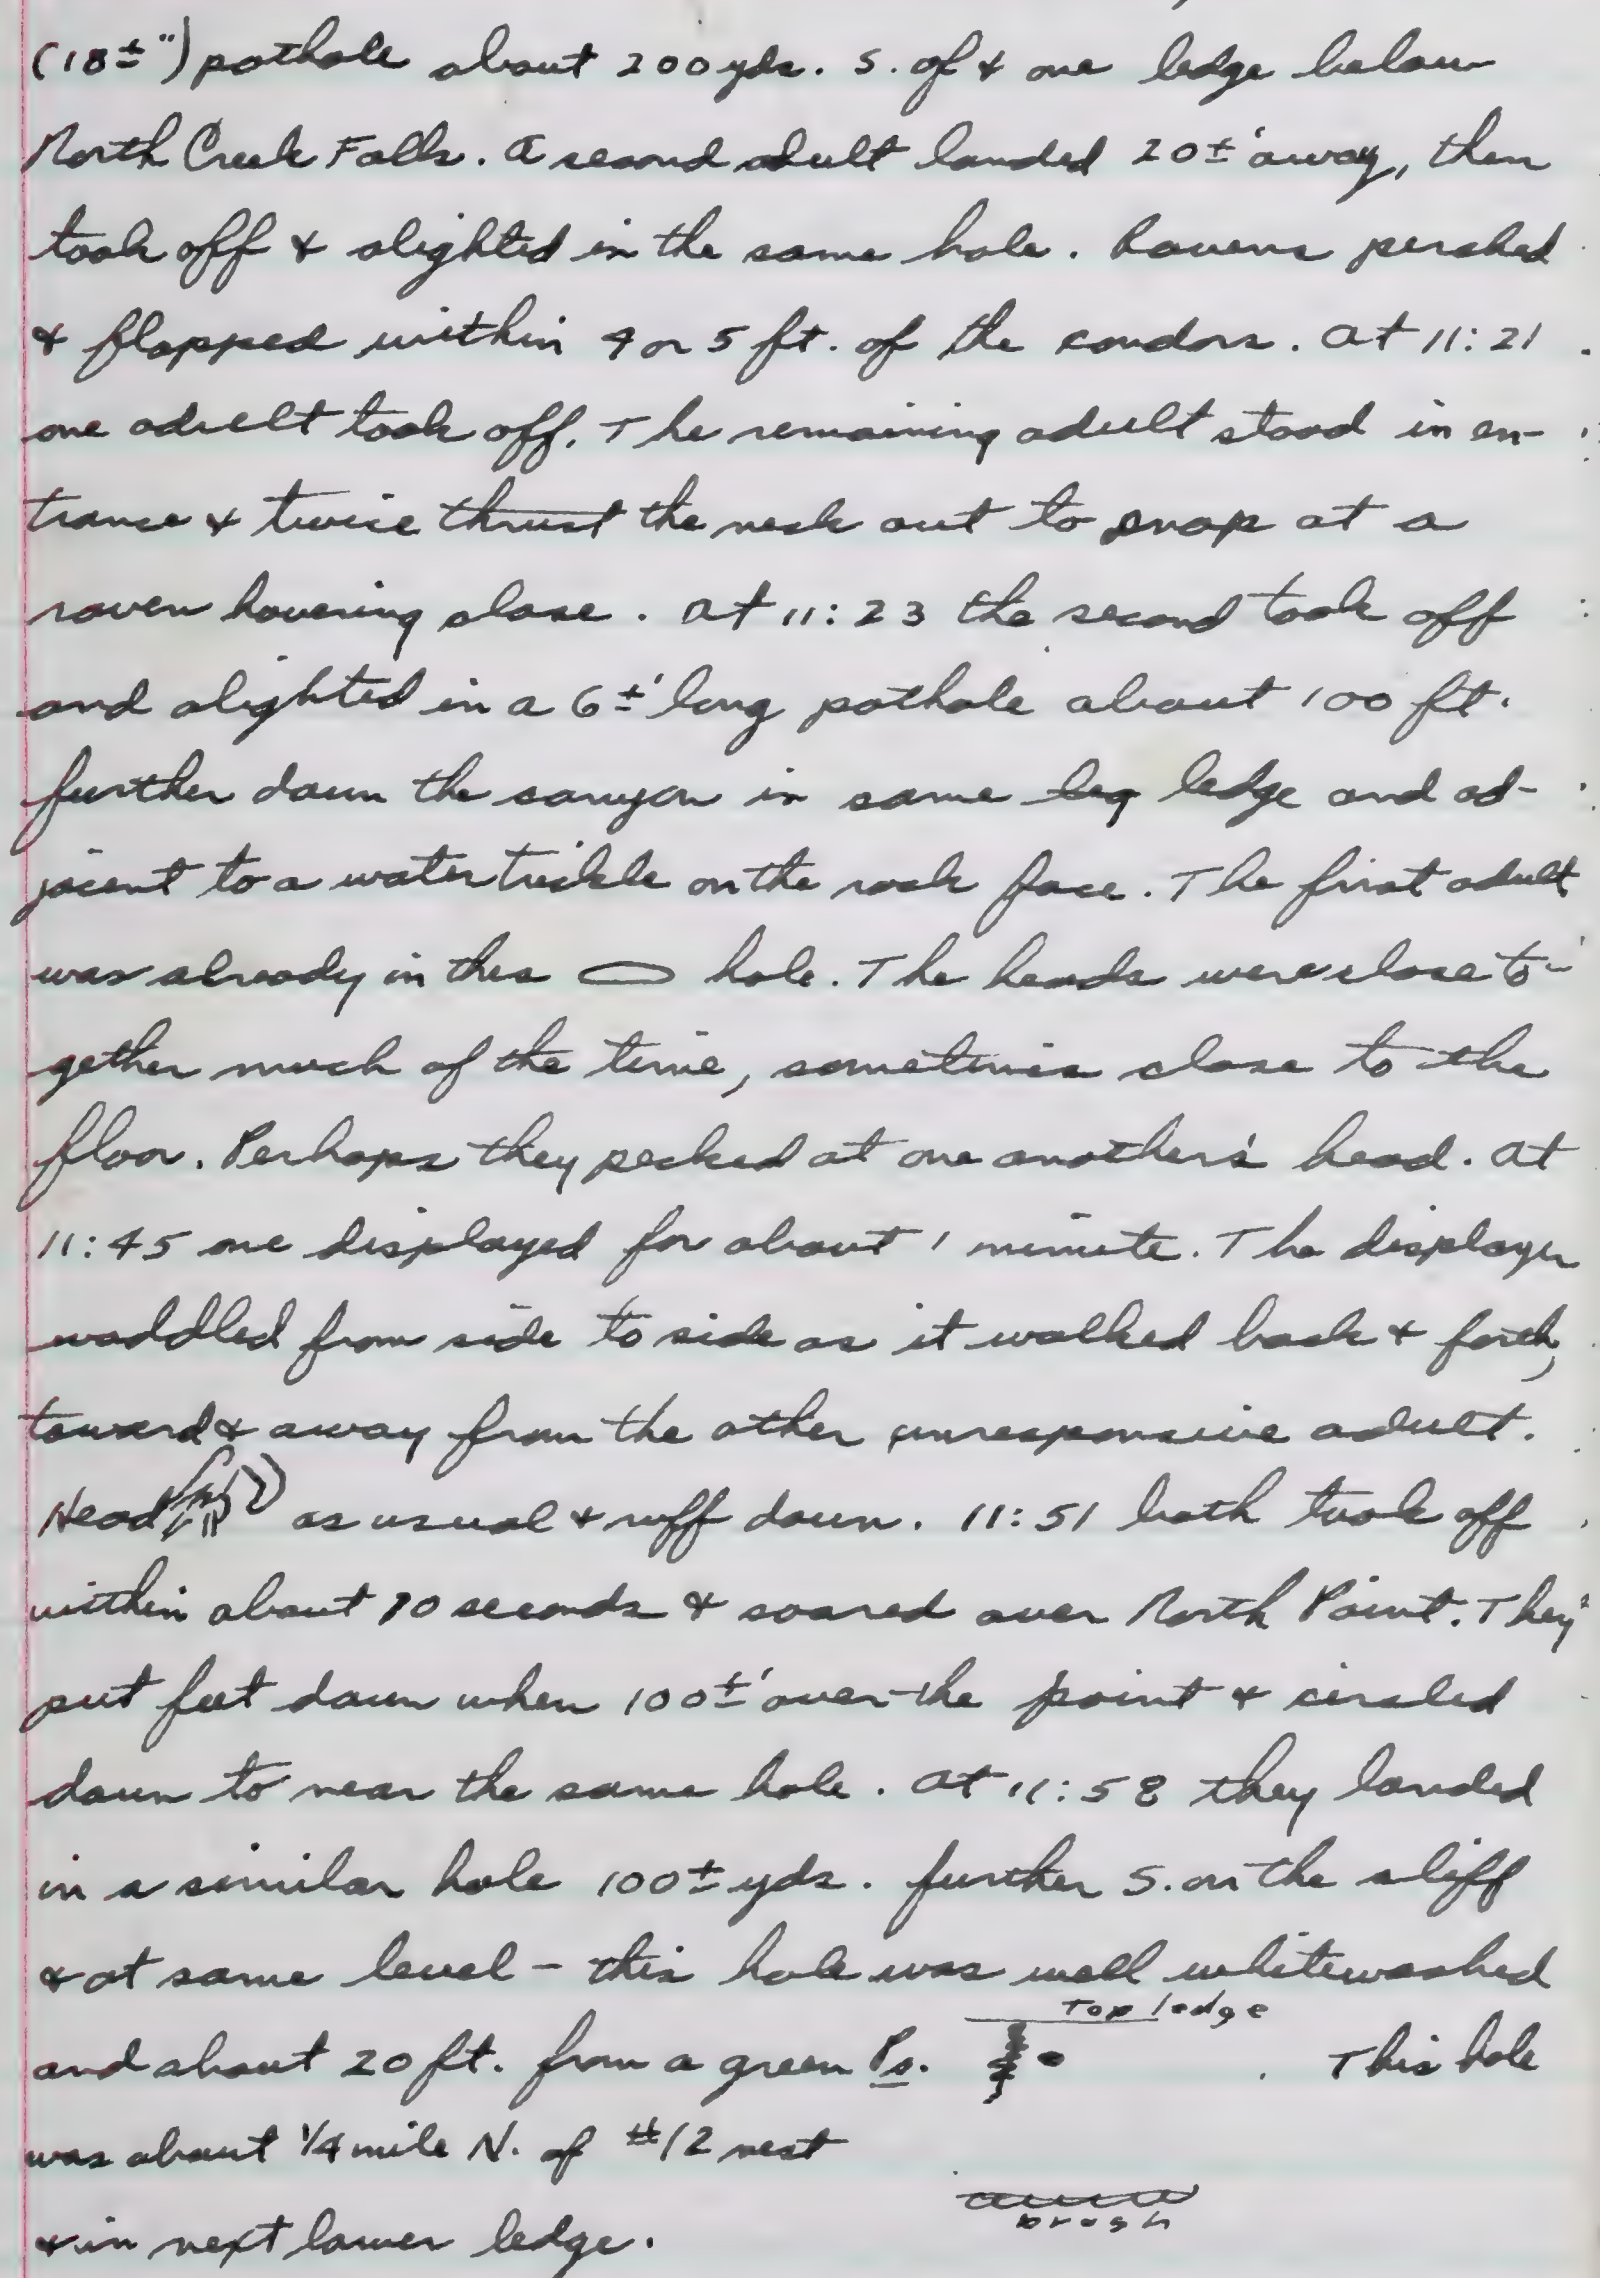 (18±") pothole about 200 yds. S. of & one ledge below
North Creek Falls. A second adult landed 20±' away, then
took off & alighted in the same hole. Ravens perched
& flapped within 4 or 5 ft. of the condors. At 11:21
one adult took off. The remaining adult stood in en-
trance & twice thrust the neck out to snap at a
raven hovering close. At 11:23 the second took off
and alighted in a 6±' long pothole about 100 ft.
further down the canyon in same leg ledge and ad-
jacent to a water trickle on the rock face. The first adult
was already in this hole. The heads were close to-
gether much of the time, sometimes close to the
floor. Perhaps they pecked at one another's head. At
11:45 one displayed for about 1 minute. The displayer
waddled from side to side as it walked back & forth,
toward & away from the other unresponsive adult.
Head as usual & ruff down. 11:51 both took off
within about 10 seconds & soared over North Point. They
put feet down when 100±' over the point & circled
down to near the same hole. At 11:58 they landed
in a similar hole 100± yds. further S. on the cliff
& at same level - this hole was well whitewashed
Top ledge
and about 20 ft. from a green Ps. This hole
was about 1/4 mile N. of #12 nest
brush
& in next lower ledge.